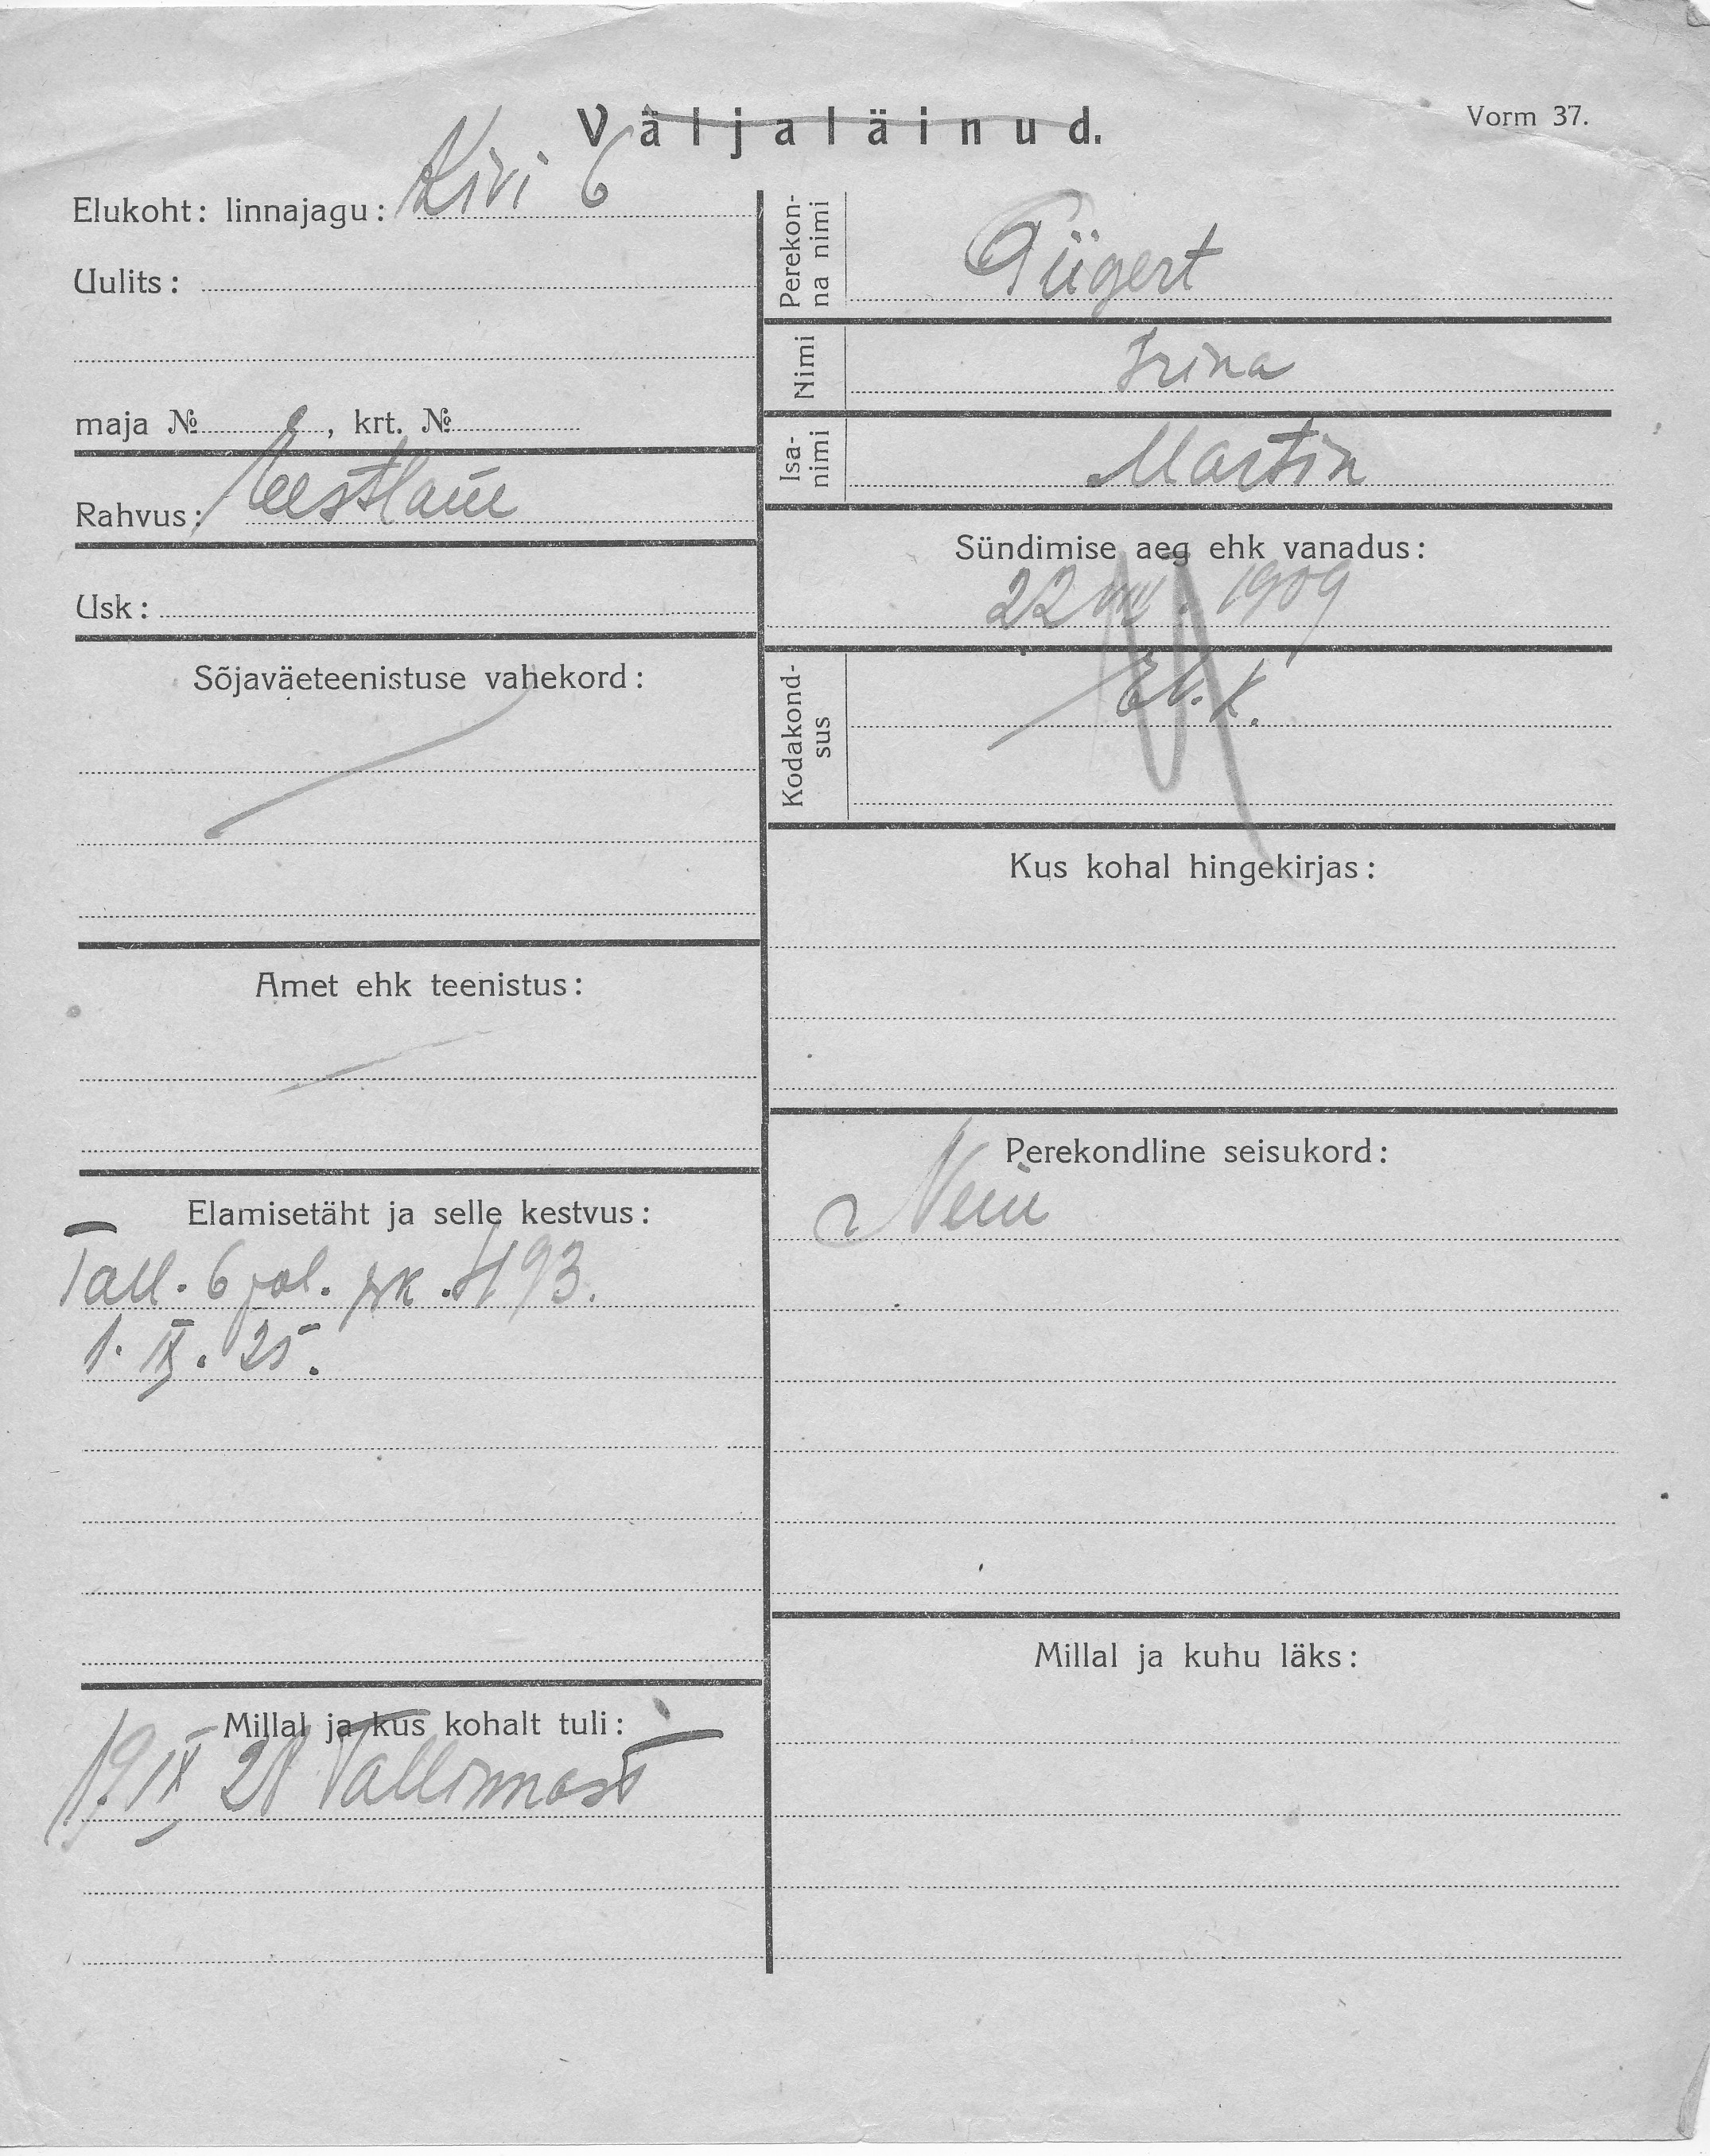 Väljaläinud.
Vorm 37.
Elukoht: linnajagu: Kivi 6
Uulits:
maja №, krt. №
Rahvus: Eestlane
Usk:
Sõjaväeteenistuse vahekord:
Amet ehk teenistus:
Elamisetäht ja selle kestvus:
Tall. 6 pol. 493.
1. IX. 25.
Millal ja kus kohalt tuli:
19 IX 28 Tallinnast
Perekonna nimi
Pügert
Nimi
Irina
Isanimi
Martin
Sündimise aeg ehk vanadus:
22 VIII. 1909
Kodakondsus
Kus kohal hingekirjas:
Perekondline seisukord:
Neiu
Millal ja kuhu läks: